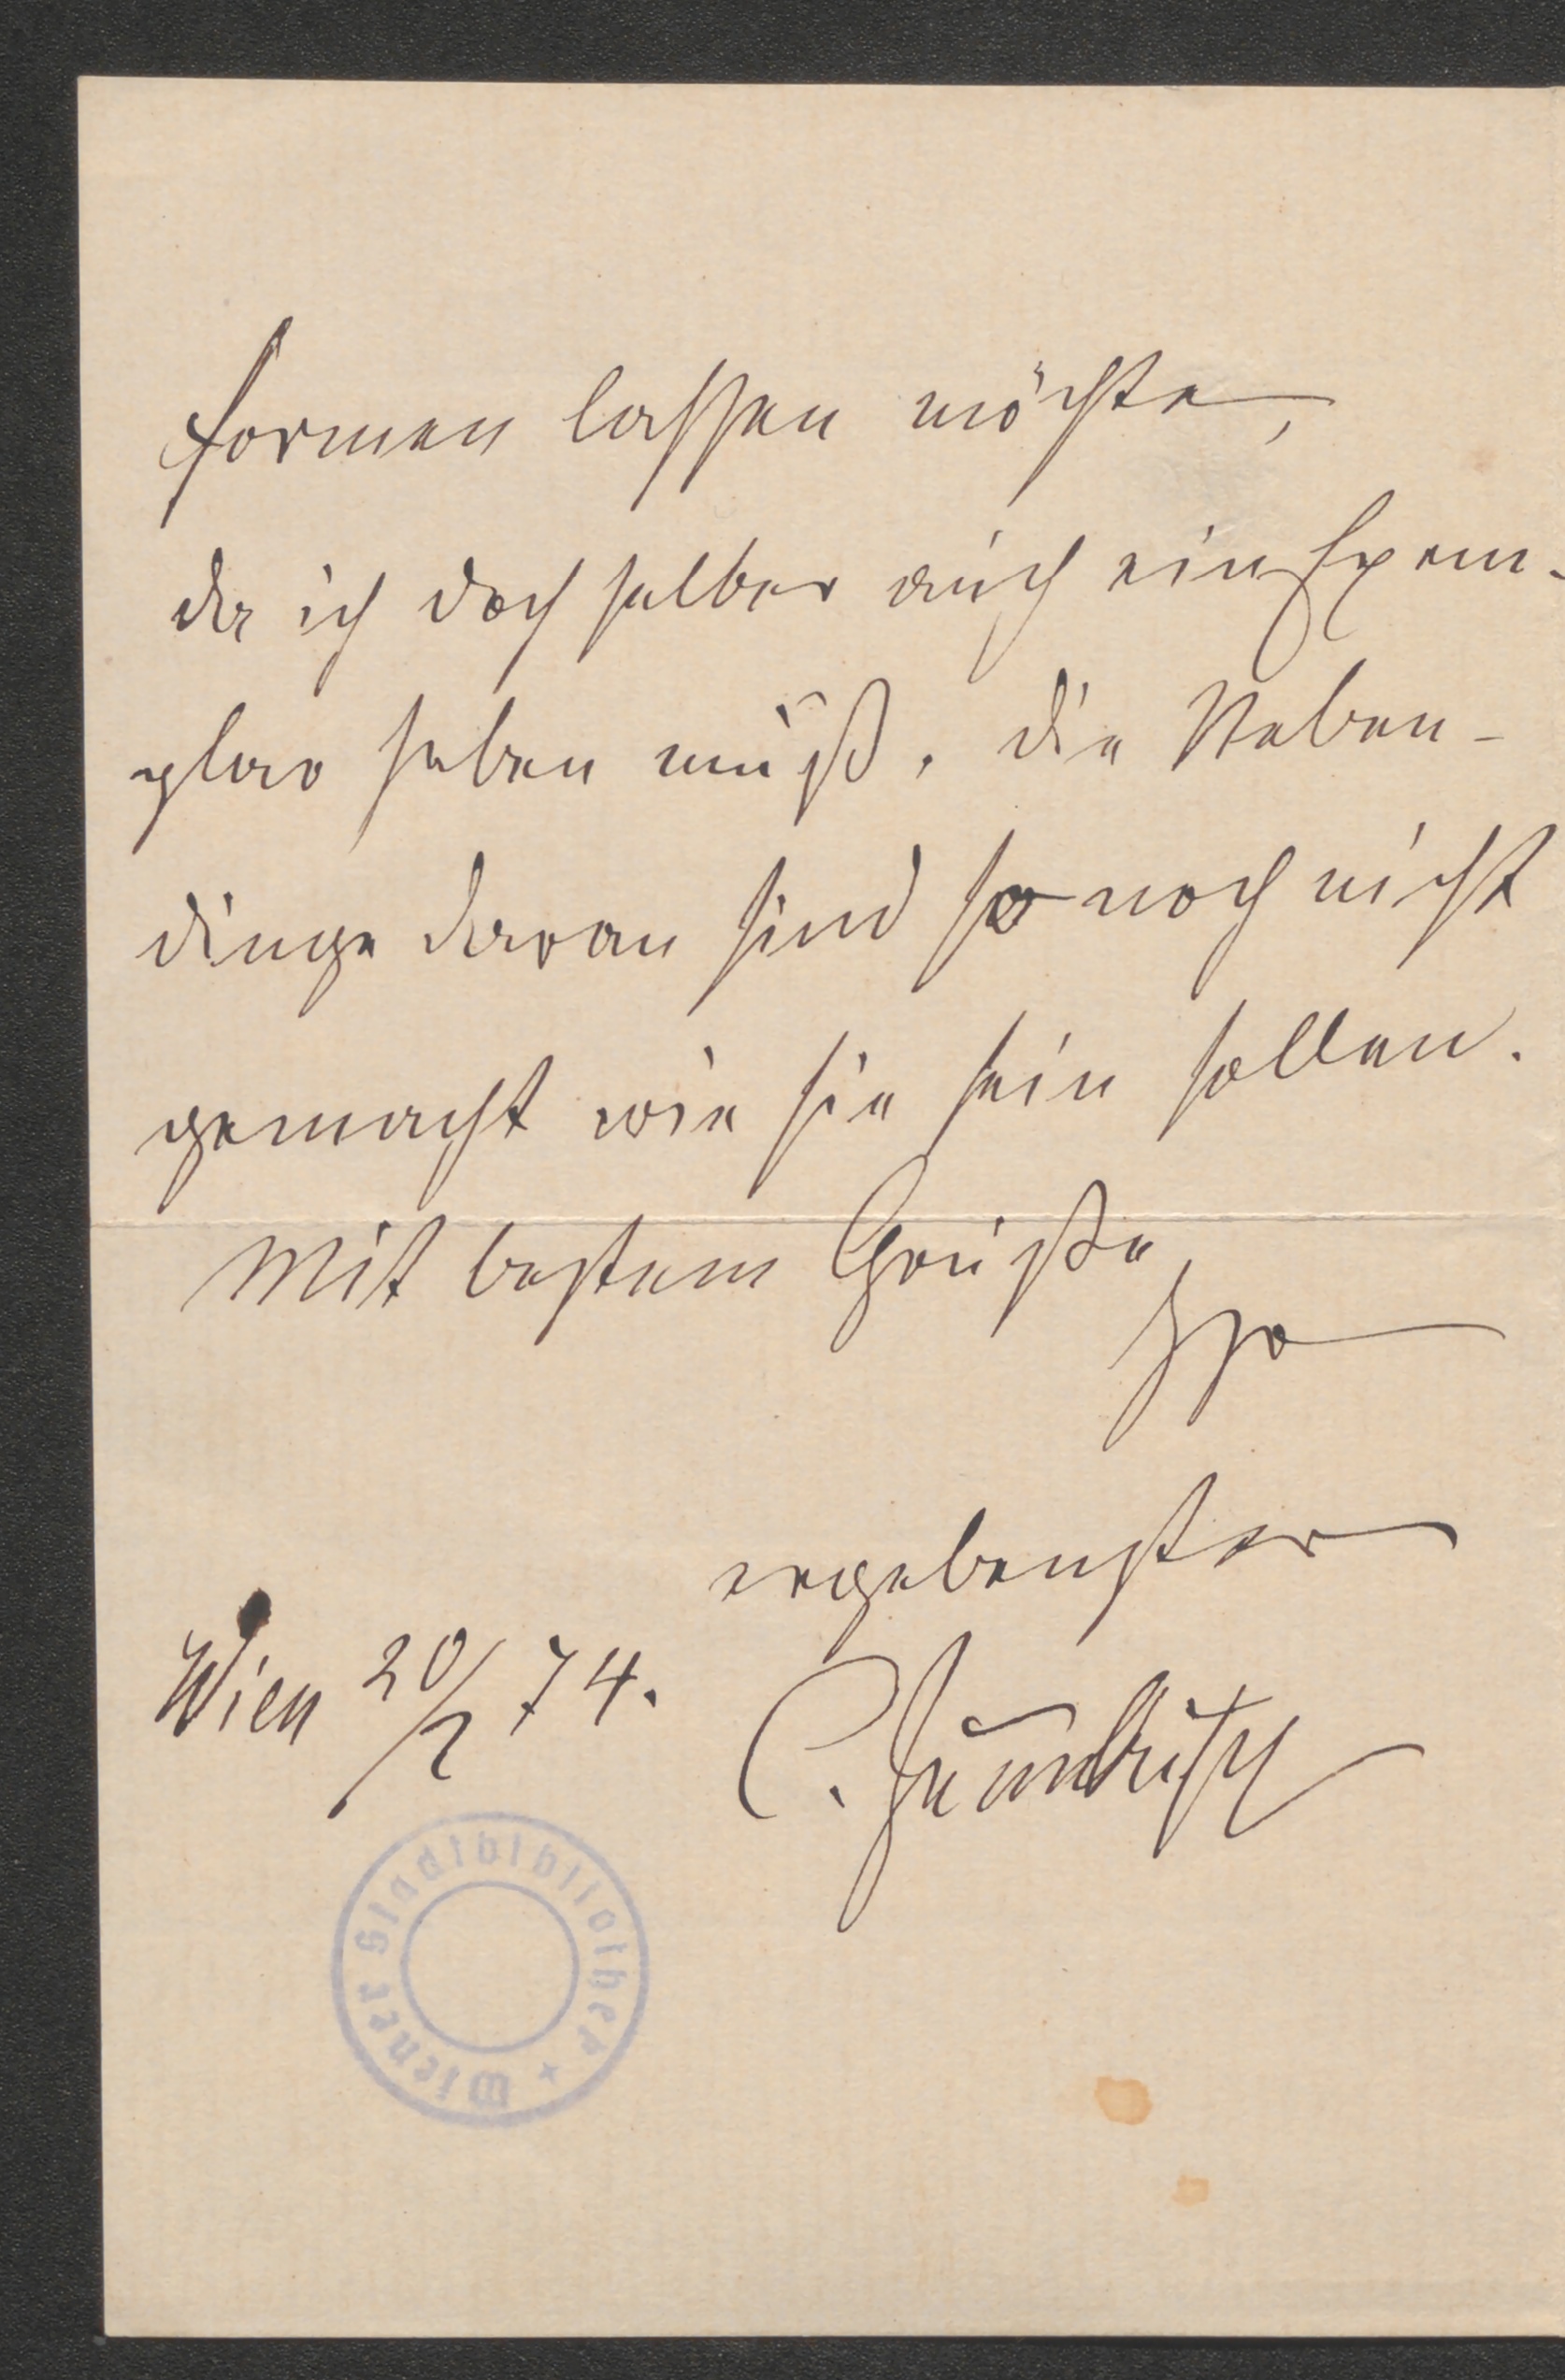 formen lassen möchte,
da ich doch selber auch ein Exem-
plar haben muß. die Neben-
dinge daran sind so noch nicht
gemacht wie sie sein sollen.
Mit bestem Gruße,
Ihr
ergebenster
Wien 20/2 74.
C. Zumbusch
Wiener Stadtbibliothek *